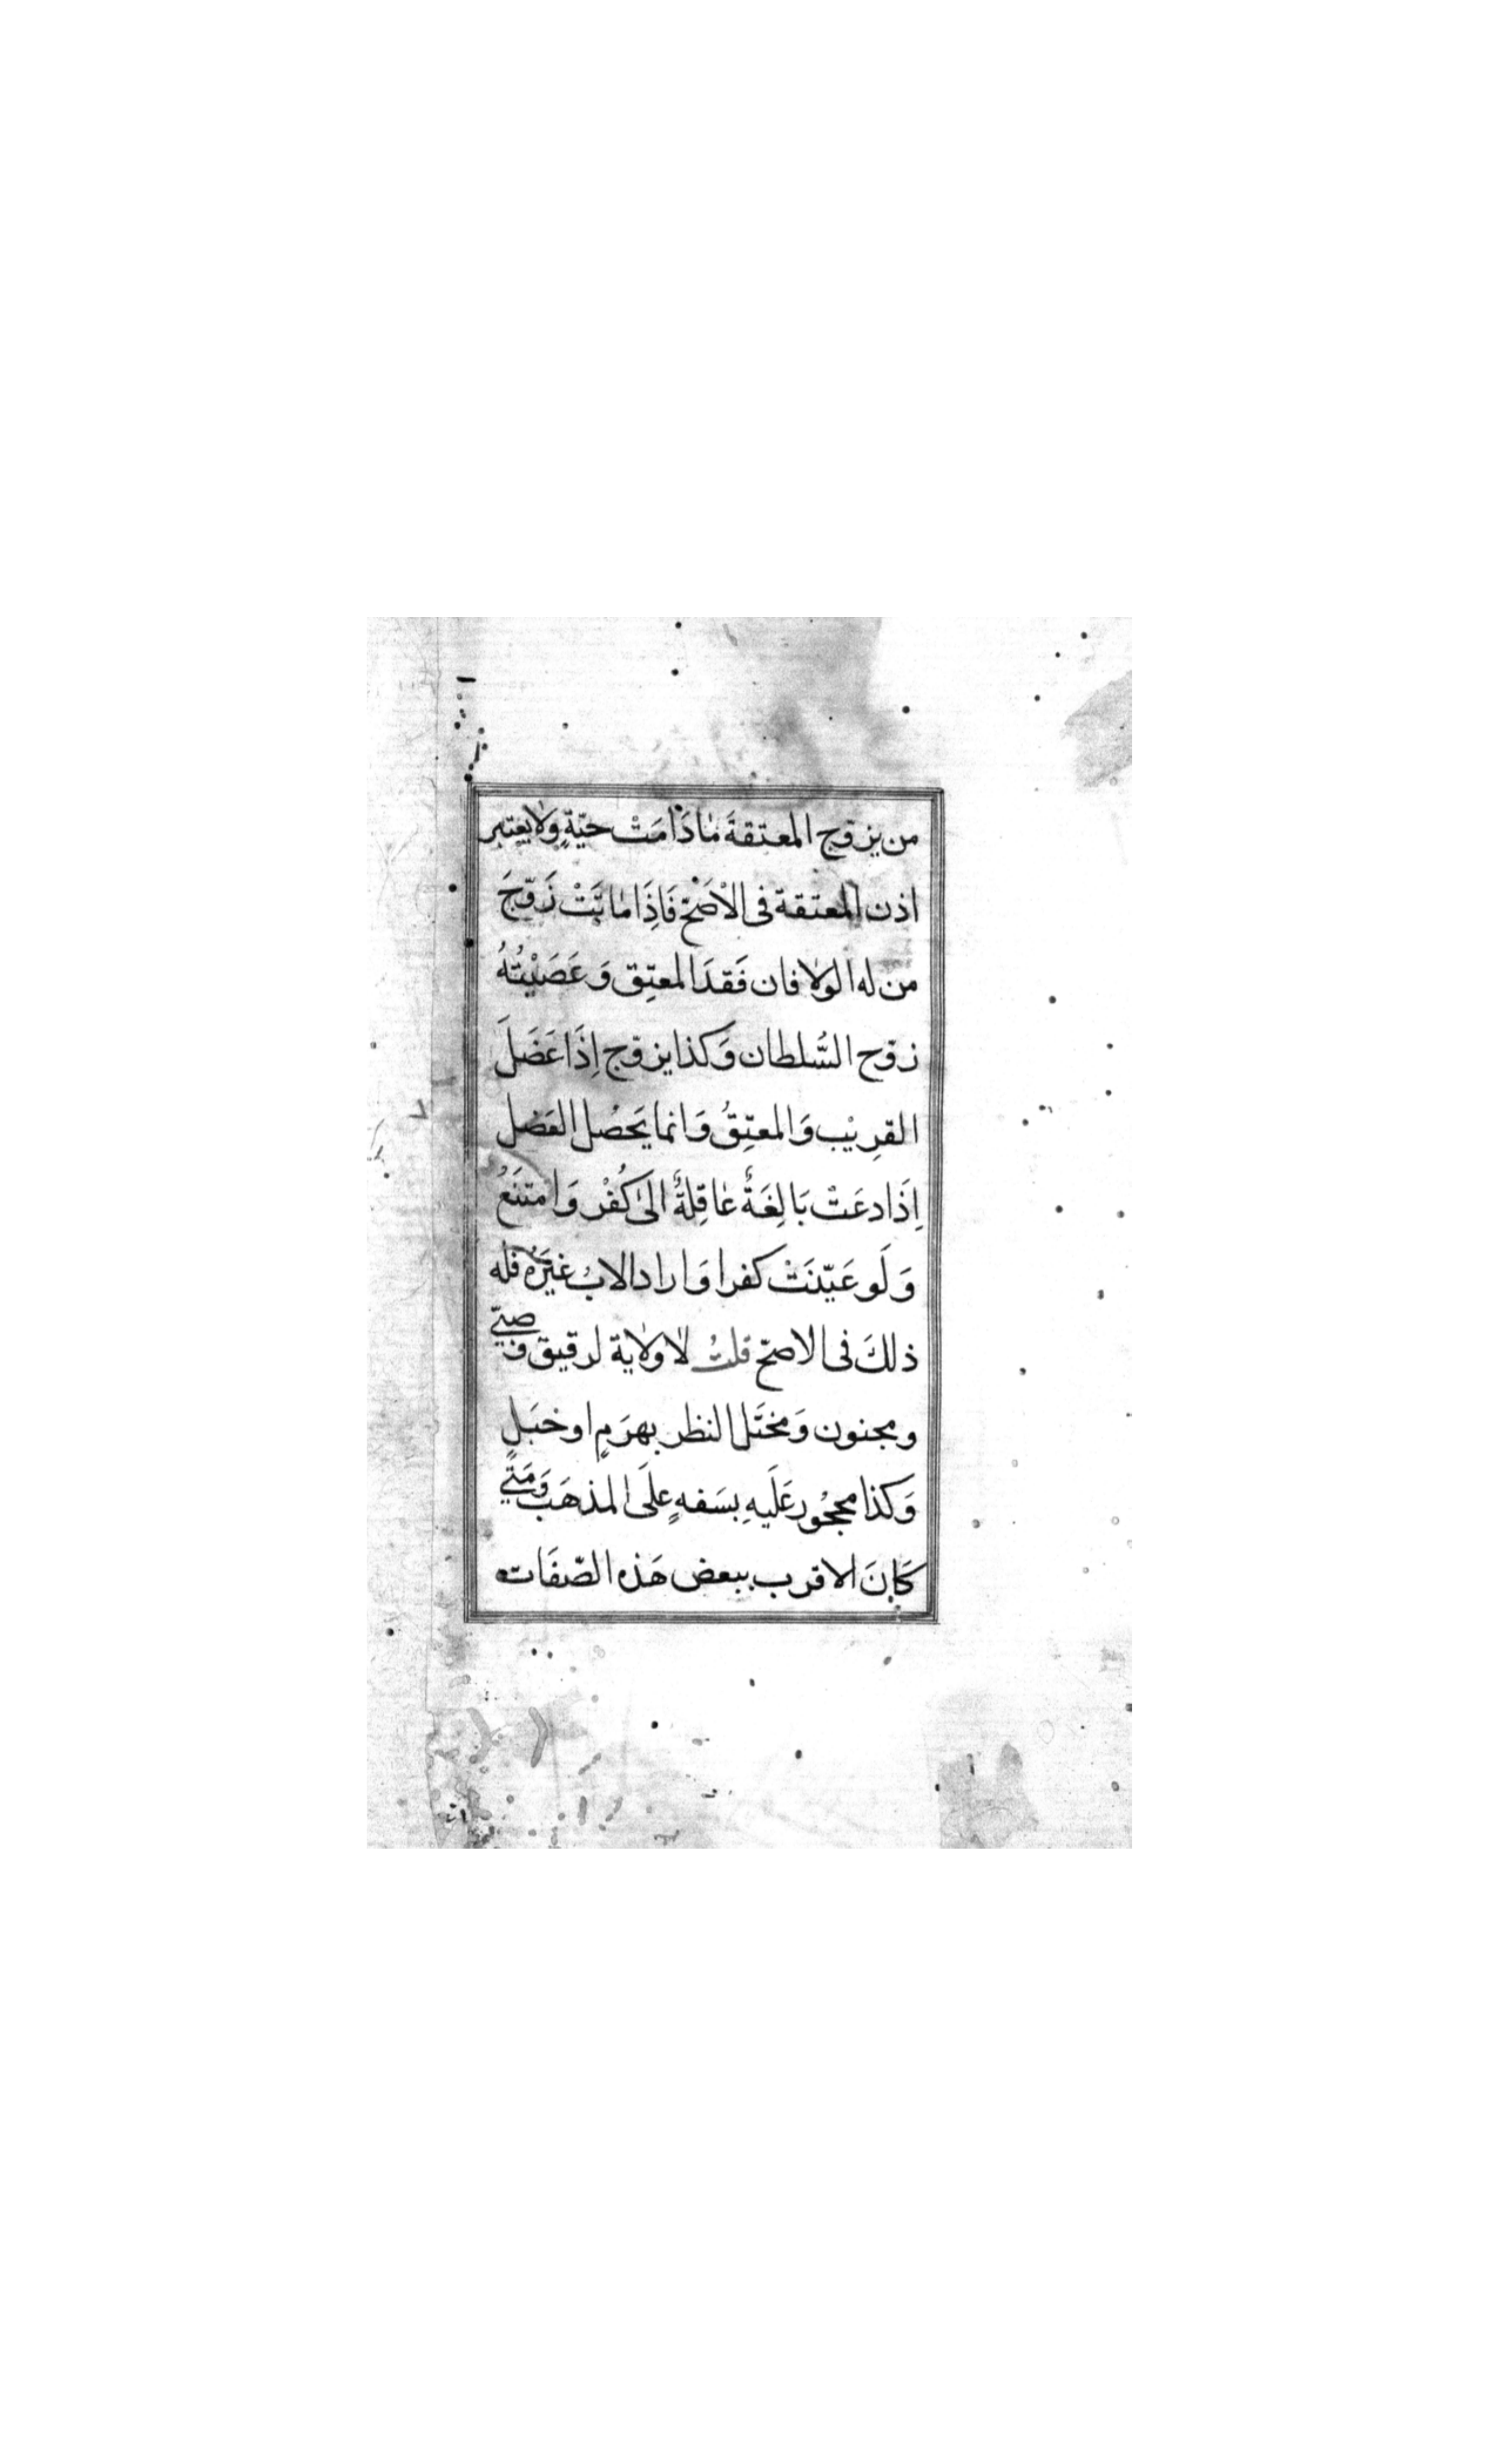 من يزوّج المعتقةَ مَاذَامَتْ حيّةٍ ولا يعتبر
اذن المعتقة فى الاْصَحّ فَاِذَا مَاتَتْ زَوّجَ
من له الولا فان فَقدَ المعتِق وَعَصَبْتُهُ
زوّح السُّلطان وَكذا يزوّج اِذَا عَضَلَ
القرِيْب وَالمعتِقُ وَانما يَحصُل العَضل
اِذَا دعَتْ بَالِغَةٌ عَاقِلةٌ الىٰ كُفْر وَامتنَعُ
وَلَو عَيّنَتْ كفرا وَاراد الابُ غيَرَهُ فله
ذلكَ فى الاصحّ قلتُ لاولاية لرقيق وَصبّي
ومجنون وَمختَل النظر بهرَمٍ اوخبَلٍ
وَكذا محجُور عَلَيهِ بسَفهٍ علَى المذهَبْ وَمَتٰي
كَانَ الاقرب ببعض هَذه الصّفَات